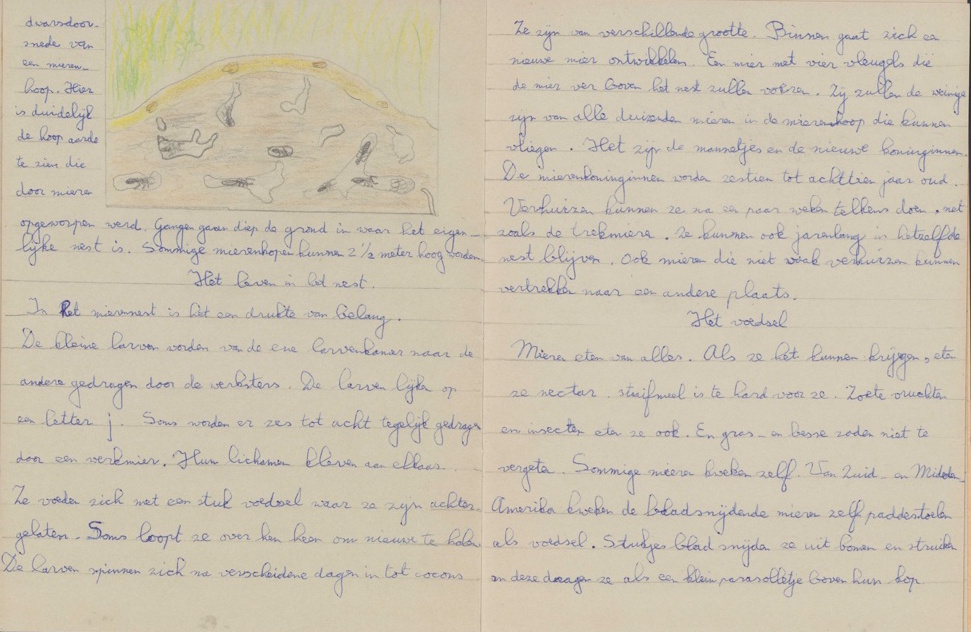 dwarsdoor-
snede van
een mieren-
hoop. Hier
is duidelijk
de hoop aarde
te zien die
door mieren
opgeworpen werd. Gangen gaan diep de grond in waar het eigen-
lijke nest is. Sommige mierenhopen kunnen 2 1/2 meter hoog worden.
Het leven in het nest.
In het mierennest is het een drukte van belang.
De kleine larven worden van de ene larvenkamer naar de
andere gedragen door de werksters. De larven lijken op
een letter j. Soms worden er zes tot acht tegelijk gedragen
door een werkmier. Hun lichamen kleven aan elkaar.
Ze voeden zich met een stuk voedsel waar ze zijn achter-
gelaten. Soms loopt ze over hen heen om nieuw te halen
De larven spinnen zich na verscheidene dagen in tot cocons
Ze zijn van verschillende grootte. Binnen gaat zich een
nieuwe mier ontwikkelen. Een mier met vier vleugels die
de mier ver boven het nest zullen voeren. Zij zullen de weinige
zijn van alle duizenden mieren in de mierenhoop die kunnen
vliegen. Het zijn de mannetjes en de nieuwe koninginnen.
De mierenkoninginnen worden zestien tot achttien jaar oud.
Verhuizen kunnen ze na een paar weken telkens doen, net
zoals de trekmieren. Ze kunnen ook jarenlang in hetzelfde
nest blijven. Ook mieren die niet vaak verhuizen kunnen
vertrekken naar een andere plaats.
Het voedsel
Mieren eten van alles. Als ze het kunnen krijgen, eten
ze nectar. stuifmeel is te hard voor ze. Zoete vruchten
en insecten eten ze ook. En gras- en besse zaden niet te
vergeten. Sommige mieren kweken zelf. Van Zuid- en Midden-
Amerika kweken de bladsnijdende mieren zelf paddestoelen
als voedsel. Stukjes blad snijden ze uit bomen en struiken
en deze dragen ze als een klein parasolletje boven hun kop